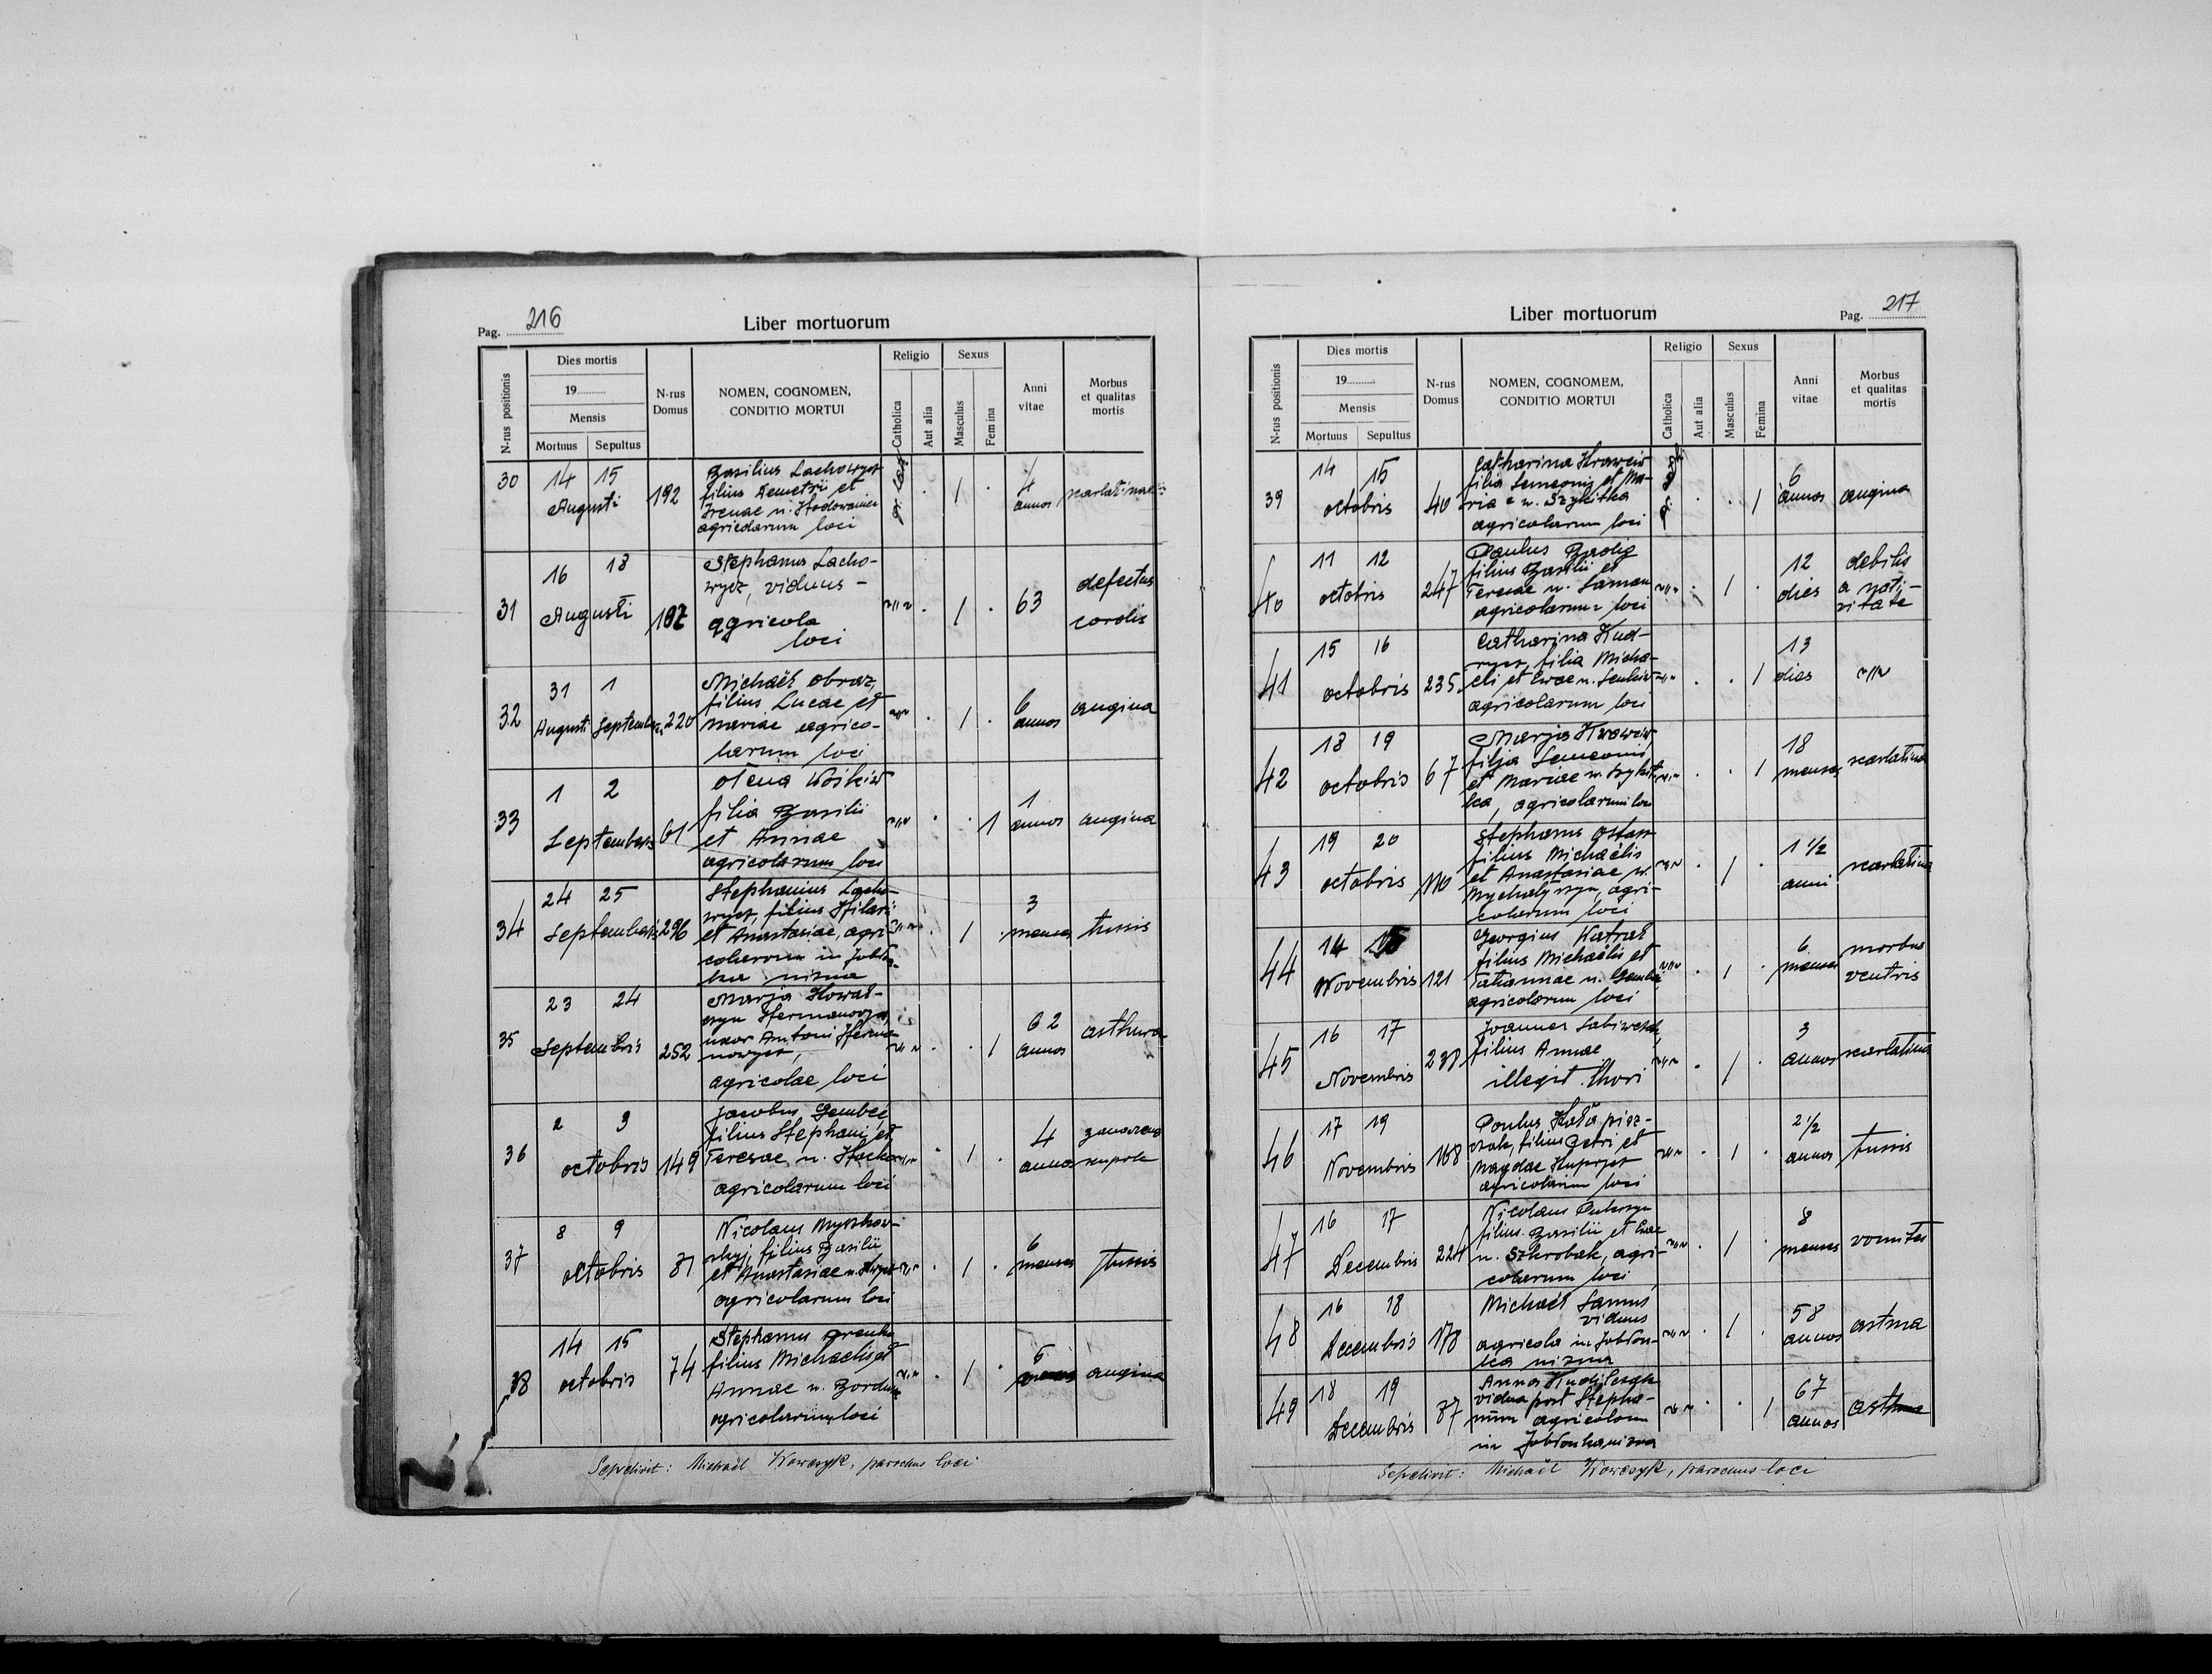 Pag. 216
Liber mortuorum
N-rus positionis
Dies mortis
19
Mensis
Mortuus Sepultus
N-rus Domus
NOMEN, COGNOMEN,
CONDITIO MORTUI
Religio
Catholica
Aut alia
Sexus
Masculus
Femina
Anni vitae
Morbus et qualitas mortis
30
14 15
Augusti
192
Basilius Lachowycz
filius Demetrii et
Irenae n.
agricolarum loci
1
4
annos
31
16 18
Augusti
Stephanus Lacho-
wycz, viduus -
agricola
loci
1
63
defectus
cordis
32
31 1
Augusti Septembris
220
Michaël Obraz,
filius Lucae et
Mariae agrico-
larum loci
1
6
annos
angina
33
1 2
Septembris
61
Olena Wośkiw
filia Basilii
et Annae
agricolarum loci
1
1
annos
angina
34
24 25
Septembris
296
Stephanus Lacho-
wycz, filius Hilarii
et Anastasiae, agri-
colarum in Jabłon-
ka niżna
1
3
menses
tussis
35
23 24
Septembris
252
Marja Kował-
czyn Hermanowycz,
uxor Antoni Herma-
nowycz,
agricolae loci
1
62
annos
asthma
36
2 3
octobris
149
Jacobus Gembej
filius Stephani et
Teresae n.
agricolarum loci
1
4
annos
37
8 9
octobris
81
Nicolaus Myszkow-
skyj, filius Basilii
et Anastasiae n.
agricolarum loci
1
6
menses
tussis
38
14 15
octobris
74
Stephanus
filius Michaelis et
Annae n.
agricolarum loci
1
6
angina
Sepelivit: Michaël Wowczyk, parochus loci
Liber mortuorum
Pag. 217
N-rus positionis
Dies mortis
19
Mensis
Mortuus Sepultus
N-rus Domus
NOMEN, COGNOMEM,
CONDITIO MORTUI
Religio
Catholica
Aut alia
Sexus
Masculus
Femina
Anni vitae
Morbus et qualitas mortis
39
14 15
octobris
40
Catharina Kraweiw
filia Semeonis et Ma-
riae n. Szykitka
agricolarum loci
1
6
annos
angina
40
11 12
octobris
247
Paulus
filius Basilii et
Teresae n.
agricolarum loci
1
12
dies
debilis
a nati-
vitate
41
15 16
octobris
235
Catharina Kud-
rycz, filia Micha-
eli et Evae n. Senkiw
agricolarum loci
1
13
dies
42
18 19
octobris
67
Marja Kraweiw
filja Semeonis
et Mariae n. Szykit-
ka, agricolarum loci
1
18
menses
scarlatina
43
19 20
octobris
110
Stephanus
filius Michaëlis
et Anastasiae n.
agri-
colarum loci
1
1 1/2
anni
scarlatina
44
14 15
Novembris
121
Georgius Watral
filius Michaëlis et
Tatiannae n. Gembej
agricolarum loci
1
6
menses
morbus
ventris
45
16 17
Novembris
238
Joannes
filius Annae
illegit. thori
1
3
annos
scarlatina
46
17 19
Novembris
168
Paulus
filius Petri et
Magdae
agricolarum loci
1
2 1/2
annos
tussis
47
16 17
Decembris
224
Nicolaus
filius Basilii et Evae
n. Szkrobak, agri-
colarum loci
1
8
menses
vomitus
48
16 18
Decembris
178
Michaël Sannus
viduus
agricola in Jabłon-
ka niżna
1
58
annos
astma
49
18 19
Decembris
87
Anna
vidua post Stepha-
num agricolam
in Jabłonka niżna
1
67
annos
asthma
Sepelivit: Michaël Wowczyk, parochus loci